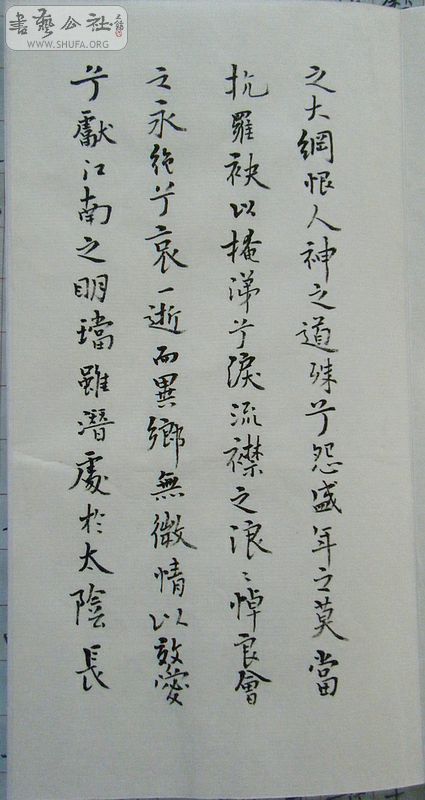 之大網恨人神之道殊兮怨盛年之莫當
抗羅袂以掩涕兮淚流襟之浪〻悼良會
之永絶兮哀一逝而異鄉無微情以效愛
兮獻江南之明璫雖潛處於太陰長
書藝公社
WWW.SHUFA.ORG